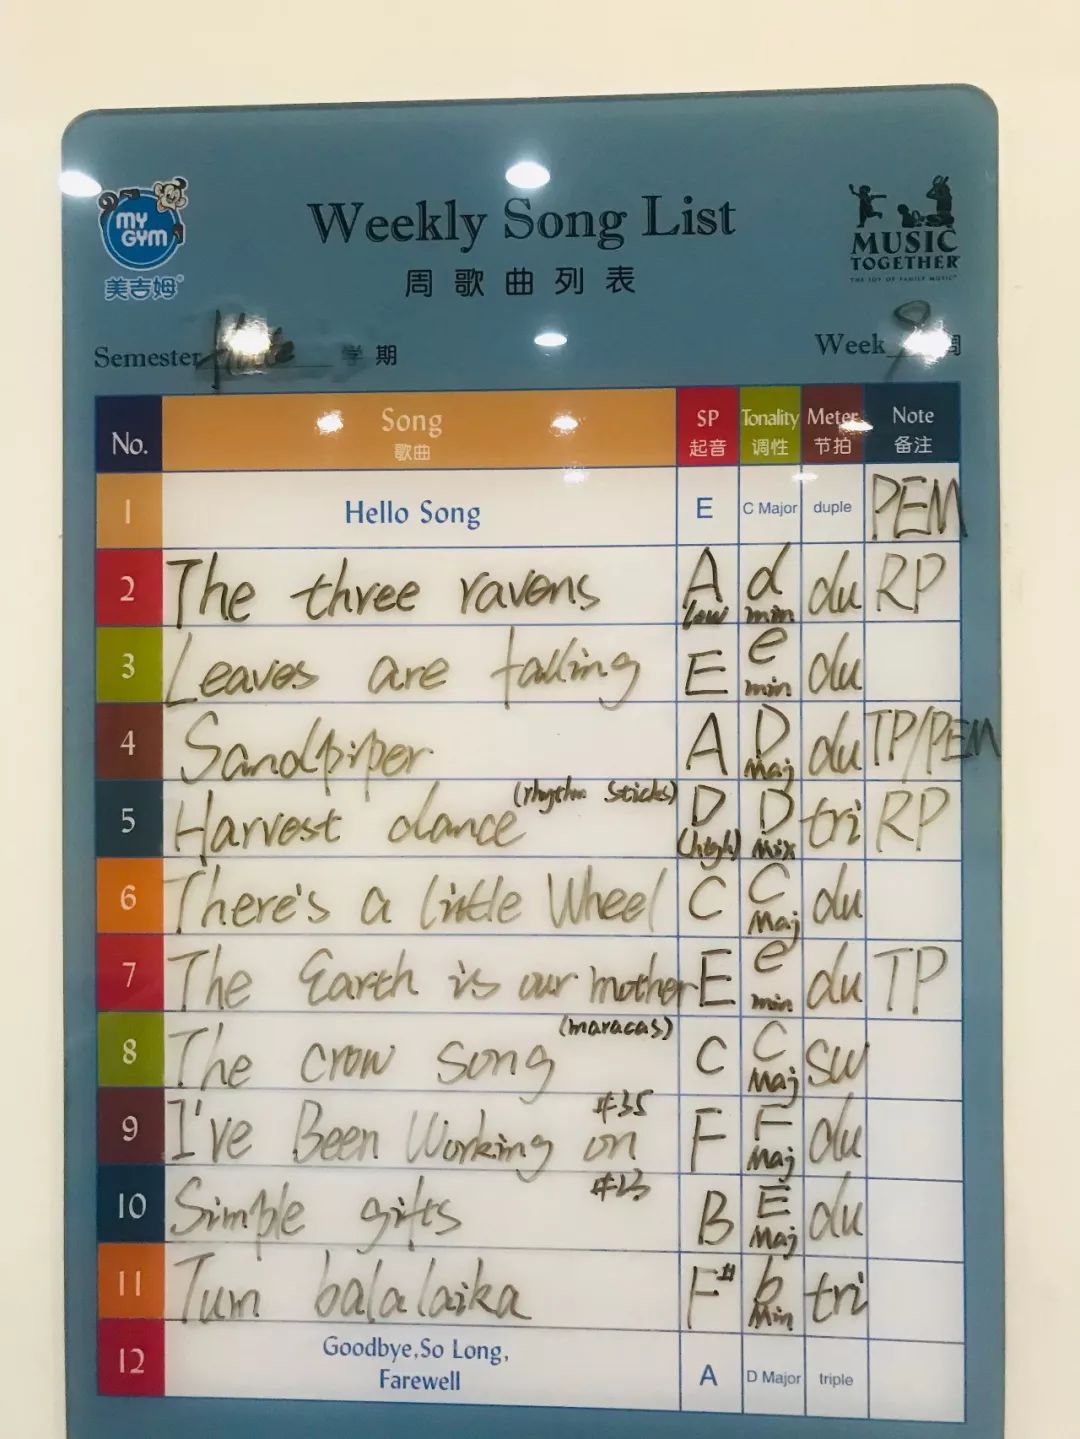 MY GYM
美吉姆
Weekly Song List
周歌曲列表
MUSIC TOGETHER
THE JOY OF FAMILY MUSIC
Semester 学期
Week 9 周
No. Song SP Tonality Meter Note
歌曲 起音 调性 节拍 备注
1 Hello Song E C Major duple PEM
2 The three ravens A low d min du RP
3 Leaves are falling E e min du
4 Sandpiper A D Maj du TP/PEM
5 Harvest dance (rhythm sticks) D (high) D Mix tri RP
6 There's a little Wheel C C Maj du
7 The Earth is our mother E e min du TP
8 The crow song (maracas) C C Maj sw
9 I've Been Working on #35 F F Maj du
10 Simple gifts #23 B E Maj du
11 Tum balalaika F# b Min tri
12 Goodbye,So Long, Farewell A D Major triple